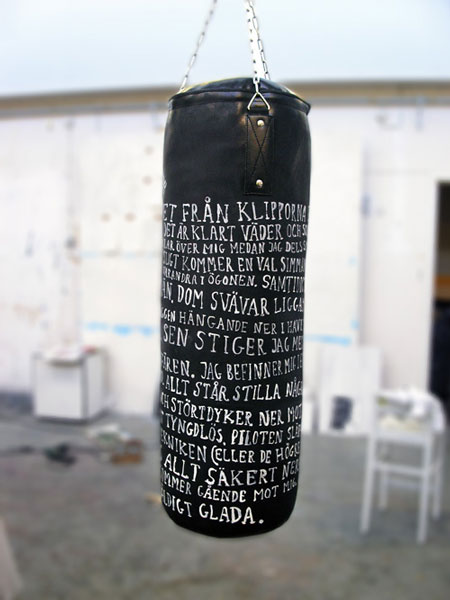 ET FRÅN KLIPPORNA
DET ÄR KLART VÄDER OCH
RAR ÖVER MIG MEDAN JAG DELS
LIGT KOMMER EN VAL SIMMA
VARANDRA I ÖGONEN. SAMTIDI
AN. DOM SVÄVAR LIGGA
GEN HÄNGANDE NER I HAVE
SEN STIGER JAG ME
ÄREN. JAG BEFINNER MIG I
ALLT STÅR STILLA NÅG
CH STÖRTDYKER NER MOT
TYNGDLÖS, PILOTEN SLÄ
EKNIKEN (ELLER DE HÖGRE
ALLT SÄKERT NER
MMER GÅENDE MOT MIG.
LDIGT GLADA.